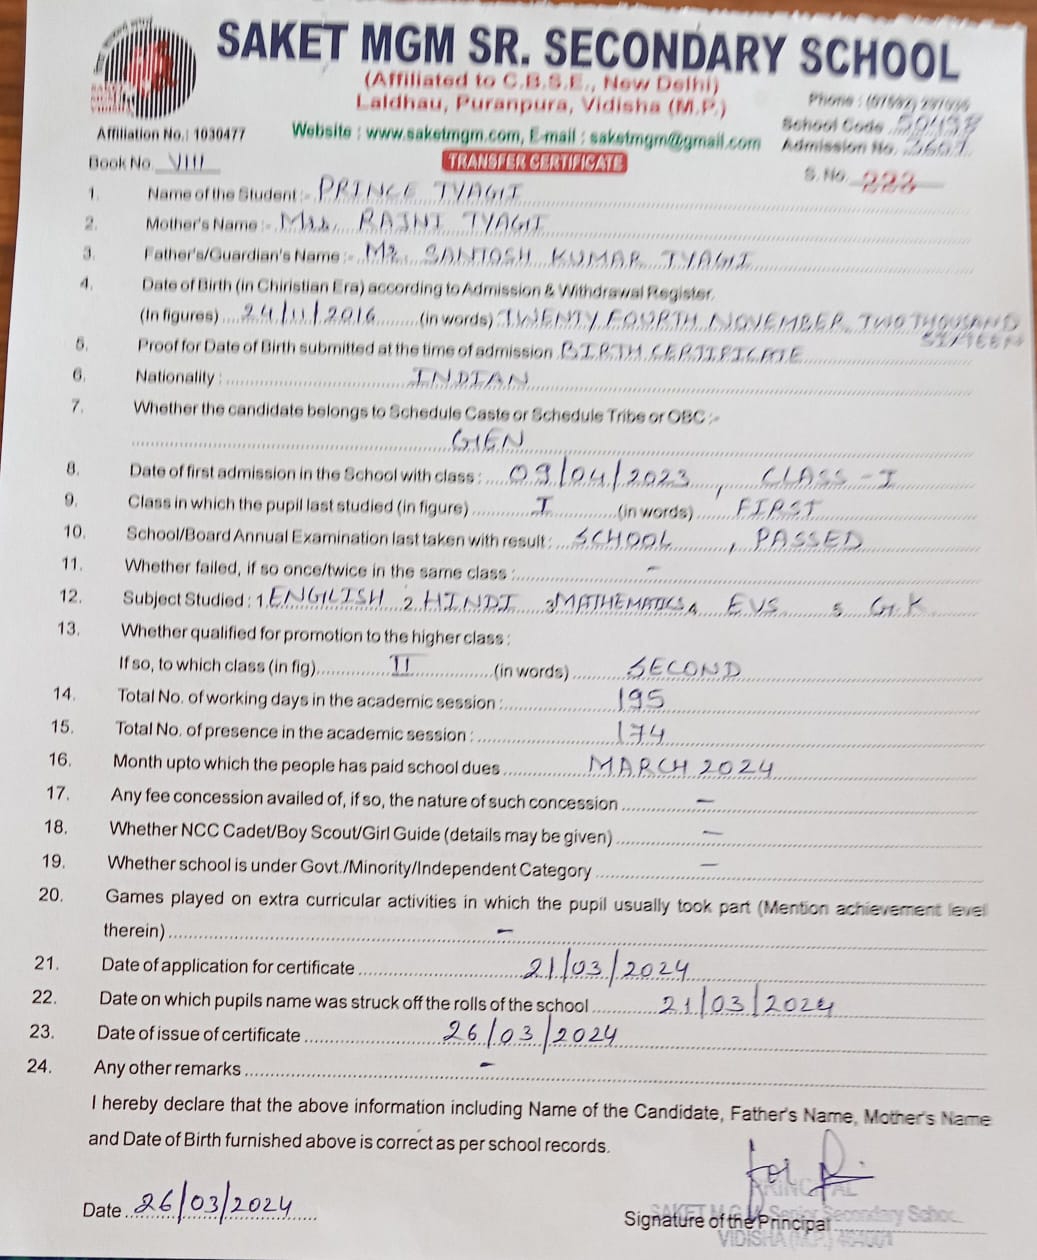 SAKET MGM SR. SECONDARY SCHOOL
(Affiliated to C.B.S.E., New Delhi)
Laldhau, Puranpura, Vidisha (M.P.)
Phone : (07592)
School Code
Affiliation No.: 1030477 Website : www.saketmgm.com, E-mail : saketmgm@gmail.com Admission No.
Book No. VIII TRANSFER CERTIFICATE S. No. 223
1. Name of the Student :- PRINCE TYAGI
2. Mother's Name :- Mrs. RAJNI TYAGI
3. Father's/Guardian's Name :- Mr. SANTOSH KUMAR TYAGI
4. Date of Birth (in Chiristian Era) according to Admission & Withdrawal Register.
(In figures) 24/11/2016 (in words) TWENTY FOURTH NOVEMBER TWO THOUSAND
SIXTEEN
5. Proof for Date of Birth submitted at the time of admission BIRTH CERTIFICATE
6. Nationality : INDIAN
7. Whether the candidate belongs to Schedule Caste or Schedule Tribe or OBC :-
GEN
8. Date of first admission in the School with class : 09/04/2023, CLASS - I
9. Class in which the pupil last studied (in figure) I (in words) FIRST
10. School/Board Annual Examination last taken with result : SCHOOL, PASSED
11. Whether failed, if so once/twice in the same class : -
12. Subject Studied : 1. ENGLISH 2. HINDI 3. MATHEMATICS 4. EVS 5. G.K
13. Whether qualified for promotion to the higher class :
If so, to which class (in fig) II (in words) SECOND
14. Total No. of working days in the academic session : 195
15. Total No. of presence in the academic session : 174
16. Month upto which the people has paid school dues MARCH 2024
17. Any fee concession availed of, if so, the nature of such concession -
18. Whether NCC Cadet/Boy Scout/Girl Guide (details may be given) -
19. Whether school is under Govt./Minority/Independent Category -
20. Games played on extra curricular activities in which the pupil usually took part (Mention achievement level
therein) -
21. Date of application for certificate 21/03/2024
22. Date on which pupils name was struck off the rolls of the school 21/03/2024
23. Date of issue of certificate 26/03/2024
24. Any other remarks -
I hereby declare that the above information including Name of the Candidate, Father's Name, Mother's Name
and Date of Birth furnished above is correct as per school records.
for
PRINCIPAL
Date 26/03/2024 SAKET M G M Senior Secondary School
Signature of the Principal
VIDISHA (M.P.) 464001